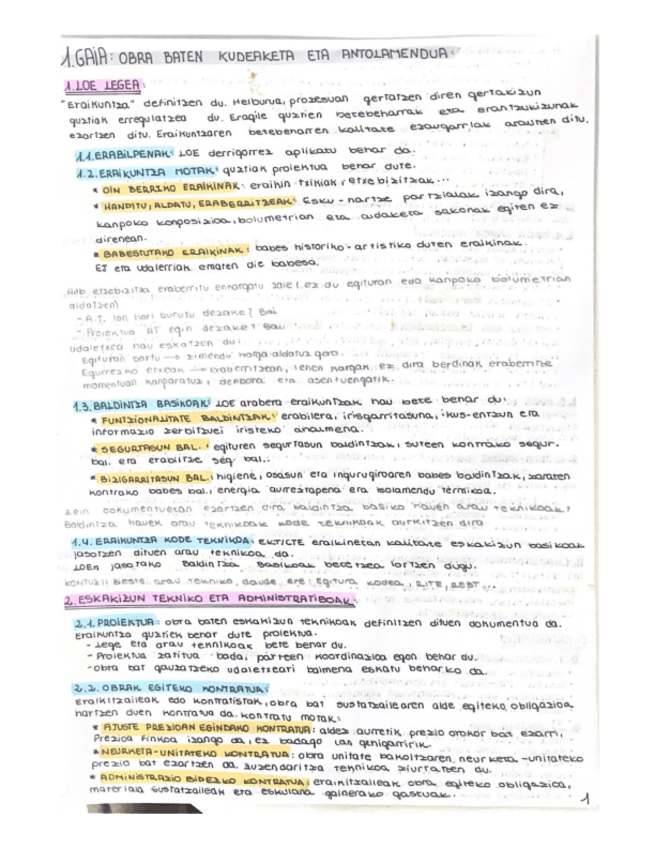 1.GAIA: OBRA BATEN KUDEAKETA ETA ANTOLAMENDUA
1.LOE LEGEA:
"Eraikuntza" definitzen du. Helburua, prozesuan gertatzen diren gertakizun
guztiak erregulatzea du. Eragile guztien betebeharrak eta erantzukizunak
ezartzen ditu. Eraikuntzaren betebeharren kalitate ezaugarriak arautzen ditu.
1.1.ERABILPENAK: LOE derrigorrez aplikatu behar da.
1.2.ERAIKUNTZA MOTAK: guztiak proiektua behar dute.
* OIN BERRIKO ERAIKINAK: eraikin txikiak, etxebizitzak...
* HANDITU, ALDATU, ERABERRITZEAK: Esku-hartze partzialak izango dira,
kanpoko konposizioa, bolumetrian eta aldaketa sakonak egiten ez
direnean.
* BABESTUTAKO ERAIKINAK: babes historiko-artistiko duten eraikinak.
EJ eta udalerriak ematen die babesa.
Adb. etxebizitza eraberritu ez du egituran edo kanpoko bolumetrian
aldatzen)
- A.T. lan hori burutu dezake? Bai
- Proiektua AT egin dezake? Bai
udaletxea hau eskatzen du:
Egituran sartu → zimendu karga aldatuz gero.
→ eraberritzean, kargak ez dira berdinak eraberritze
momentuan konparatuz, denbora eta asentuengatik.
1.3.BALDINTZA BASIKOAK: LOE arabera eraikuntzak hau bete behar du:
* FUNTZIONALITATE BALDINTZAK: erabilera, irisgarritasuna, ikus-entzun eta
informazio zerbitzuei iristeko ahalmena.
* SEGURTASUN BAL.: egituren segurtasun baldintzak, suteen kontrako segur.
bal. eta erabiltze seg. bal.
* BIZIGARRITASUN BAL.: higiene, osasun eta ingurugiroaren babes baldintzak, zarataren
kontrako babes bal., energia aurrezapena eta isolamendu termikoa.
Zein dokumentuetan ezartzen dira baldintza basiko hauen arau teknikoak?
Baldintza hauek arau teknikoak kode teknikoak aurkitzen dira
1.4. ERAIKUNTZA KODE TEKNIKOA: EKT/CTE eraikinetan kalitate eskakizun basikoak
jasotzen dituen arau teknikoa da.
LOEn jasotako Baldintza Basikoak betetzea lortzen dugu.
beste arau tekniko, daude, ere: Egitura kodea, RITE, REBT...
2. ESKAKIZUN TEKNIKO ETA ADMINISTRATIBOAK:
2.1.PROIEKTUA: obra baten eskakizun teknikoak definitzen dituen dokumentua da.
Eraikuntza guztiek behar dute proiektua.
- Lege eta arau teknikoak bete behar du.
- Proiektua zatitua bada, parteen koordinazioa egon behar du.
- obra bat gauzatzeko udaletxeari baimena eskatu beharko da.
2.2. OBRAK EGITEKO KONTRATUA:
Eraikitzaileak edo kontratistak, obra bat sustatzailearen alde egiteko obligazioa
hartzen duen kontratua da. Kontratu motak:
* AJUSTE PREZIOAN EGINDAKO KONTRATUA: aldez aurretik prezio orokor bat ezarri,
Prezioa finkoa izango da, ez badago lan gehigarririk
* NEURKETA-UNITATEKO KONTRATUA: obra unitate bakoitzaren neurketa-unitateko
prezio bat ezartzen da. zuzendaritza teknikoa ziurtatzen du.
* ADMINISTRAZIO BIDEZKO KONTRATUA: eraikitzaileak obra egiteko obligazioa,
materiala sustatzaileak eta eskulana gainerako gastuak.
1